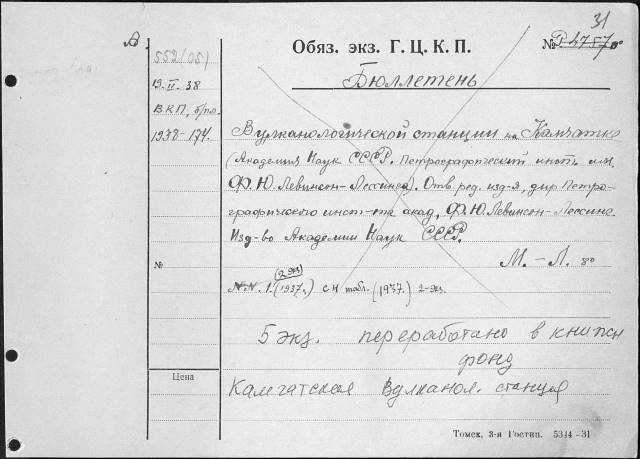 31
Обяз. экз. Г. Ц. К. П.
№ 4757
552(05)
Бюллетень
19. II. 38
В К П, б/пл.
1938-174.
Вулканологической станции на Камчатке
(Академия Наук СССР. Петрографический инст-т им.
Ф. Ю. Левинсон-Лессинга). Отв. ред. изд-я, дир. Петро-
графического инст-та акад. Ф. Ю. Левинсон-Лессинг.
Изд-во Академии Наук СССР.
М. - Л. 80
№
(2 экз)
N.N. 1. (1937.) с 4 табл. (1937.) 2-экз.
5 экз. переработано в книжн
фонд
Цена
Камчатская Вулканол. станция
Томск, 3-я Гостип. 5344-31